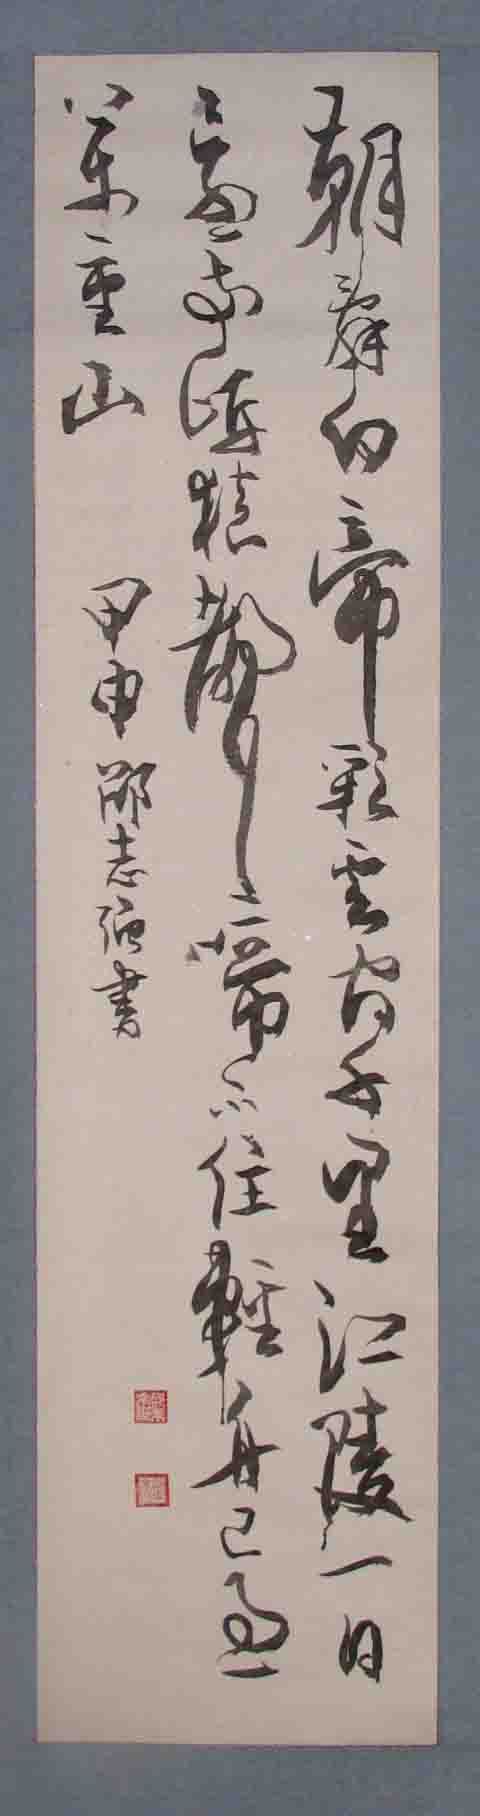 朝辭白帝彩雲間千里江陵一日
還兩岸猿聲啼不住輕舟已過
萬重山
甲申邵志强書